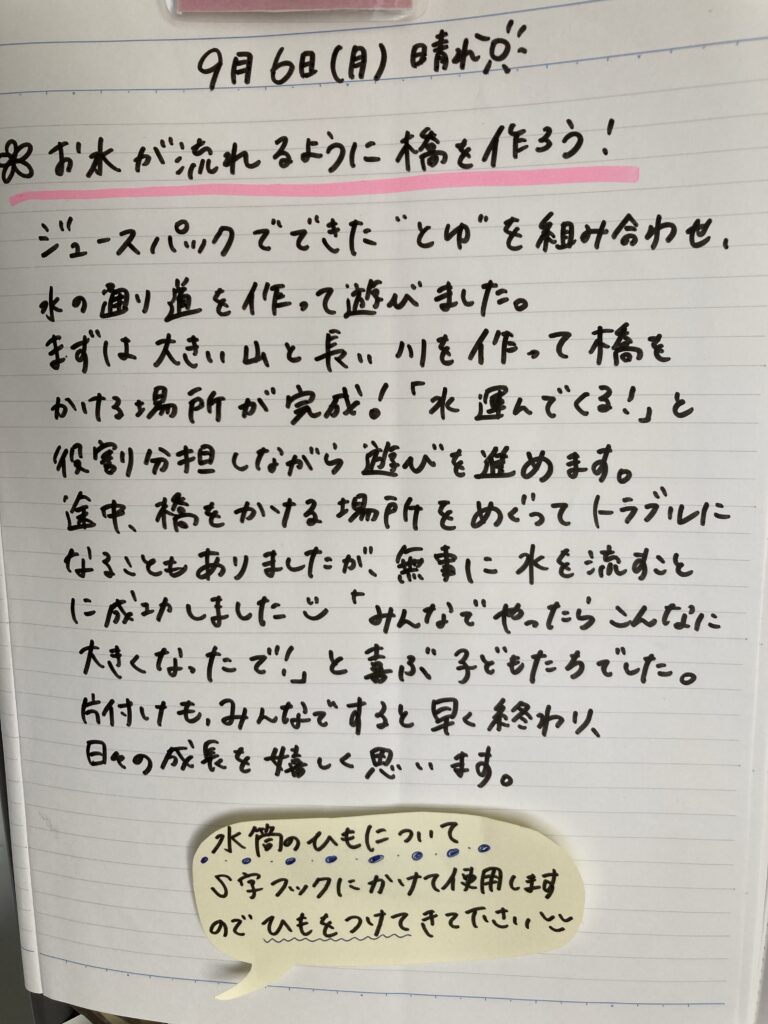 9月6日(月) 晴れ
お水が流れるように橋を作ろう!
ジュースパックでできた"とゆ"を組み合わせ、
水の通り道を作って遊びました。
まずは大きい山と長い川を作って橋を
かける場所が完成!「水運んでくる!」と
役割分担しながら遊びを進めます。
途中、橋をかける場所をめぐってトラブルに
なることもありましたが、無事に水を流すこと
に成功しました 「みんなでやったらこんなに
大きくなったで!」と喜ぶ子どもたちでした。
片付けも、みんなですると早く終わり、
日々の成長を嬉しく思います。
水筒のひもについて
S字フックにかけて使用します
のでひもをつけてきて下さい